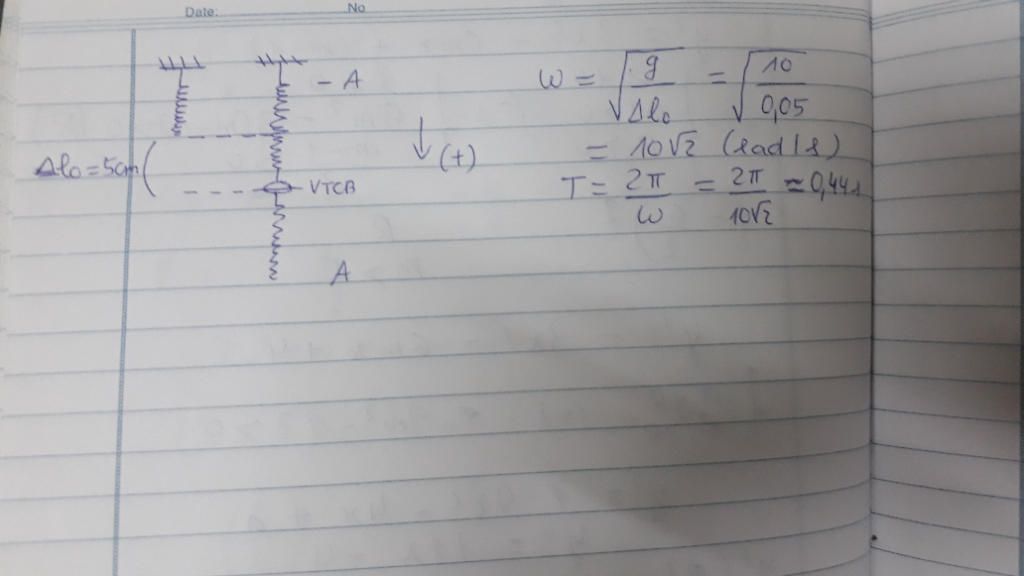 Date: No
- A
Δl₀ = 5cm
VTCB
A
(+)
ω = √(g/Δl₀) = √(10/0,05)
= 10√2 (rad/s)
T = 2π/ω = 2π/10√2 ≈ 0,44s